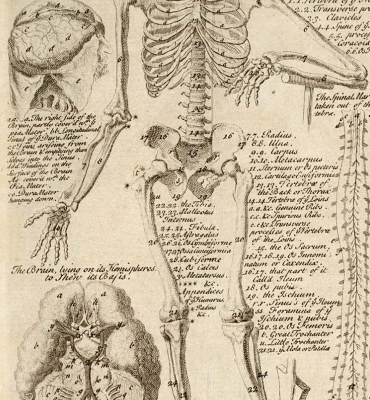 1.1. Vertebra of ye N
2.2. Transverse pr
2.3. Clavicles
4.4. Spine of ye S
5.5. proces
Coracoid
The Spinal Mar
taken out of the
tebræ.
a.a. The right side of the
Brain, partly cover'd with ye
pia Mater. bb. Longitudinal
Sinus of ye Dura Mater.
arising from
the Brain & emptying their
selves into the Sinus.
d.d. Windings on the
Surface of the Brain
cover'd wth the
Pia Mater.
e.e. Dura Mater
hanging down.
The Brain, lying on its Hemispheres,
to Show its Basis.
7.7. Radius.
8.8. Ulna.
9.9. Carpus
10.10. Metacarpus
11. Sternum or Os pectoris
12. Cartilago Ensiformis
13.13. Vertebræ of
the Back or Thorax
14.14. Vertebræ of ye Loins
c.c. &c. Genuine Ribs
s.s. &c. Spurious Ribs.
t.t. &c. Transverse
processes of ye Vertebræ
of the Loins
the Os Sacrum.
16.17. 16.17. Os Innomi
natum or Coxendix.
16.17. that part of it
Call'd Ileum
18. Os pubis.
19. the Ischium
r.r. Sinus's of ye Ileum
ss. Foramina of ye
Ischium & pubis.
20.20. Os Femoris
t. Great Trochanter
u. Little Trochanter
21.21. ye Mola or Patella
22.22. the Tibia.
23.23. Malleolus
Internus
24.24. Fibula.
25.25. Astragalus
26.26. Os Cymbiforme
27. Os Naviculare
28. Cubiforme
24. Os Calcis
Metatarsus.
**** &c.
Appendices
of ye Humerus
& Radius
&c.